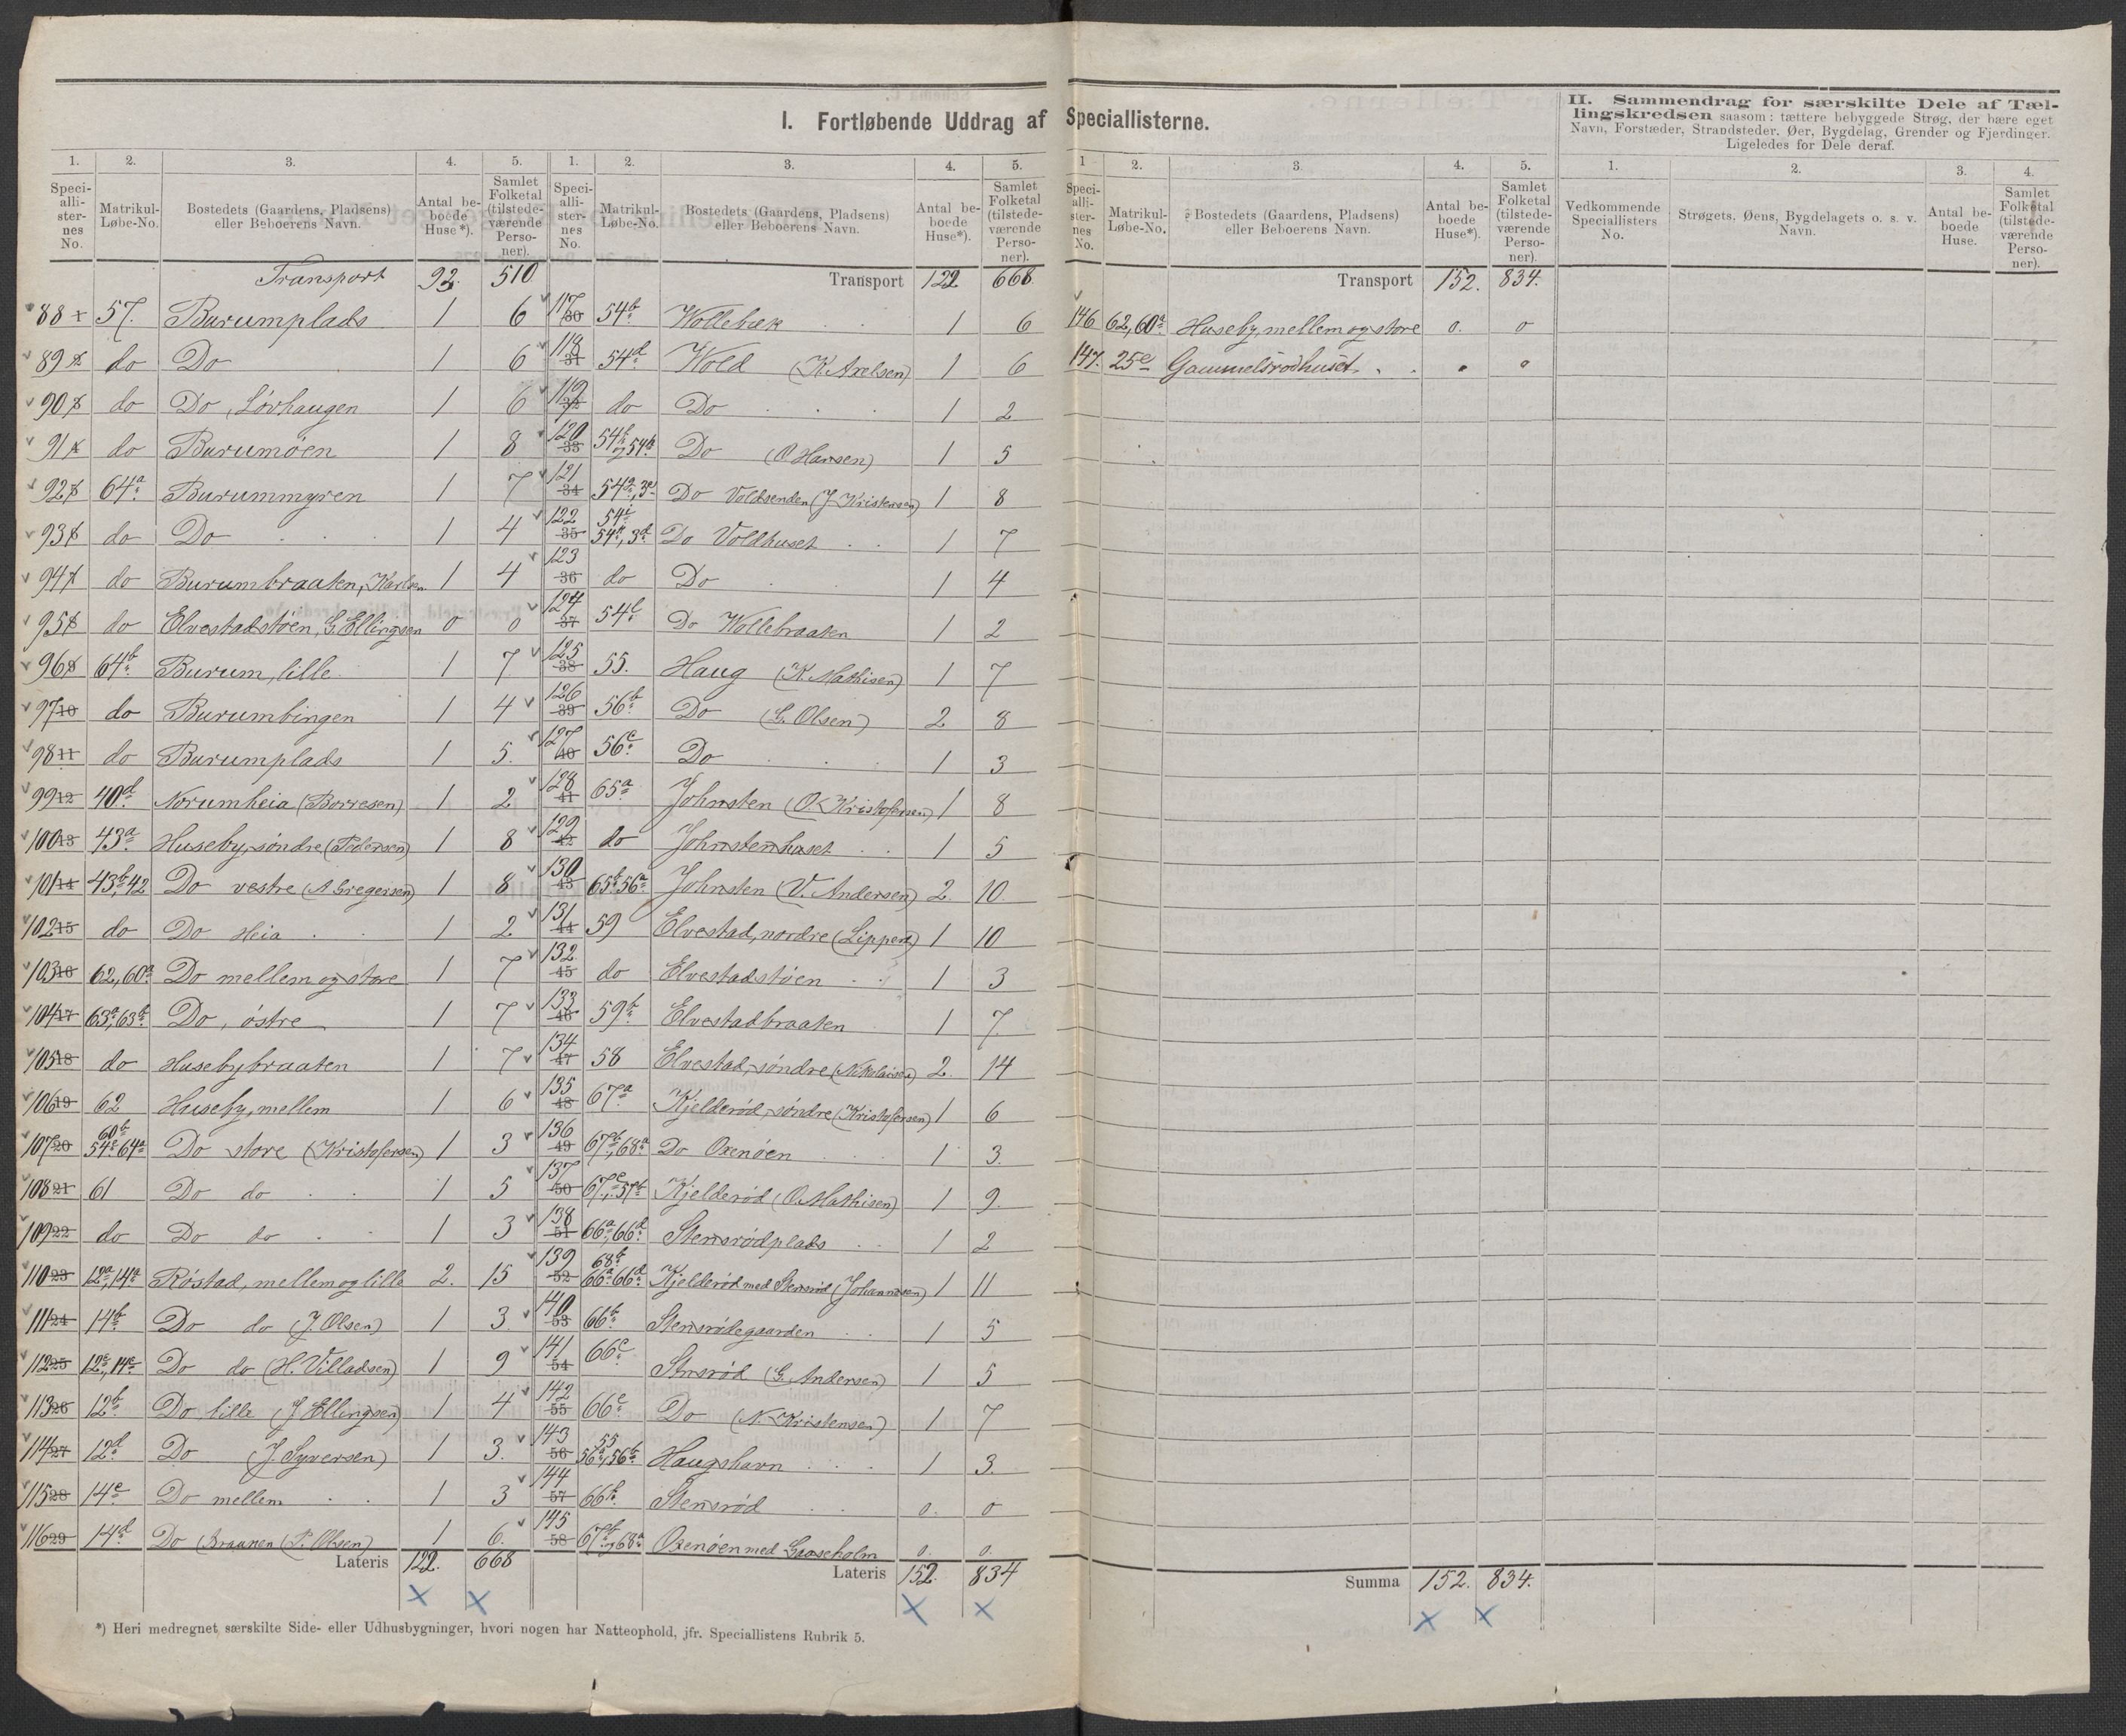 I. Fortløbende Uddrag af Speciallisterne.
II. Sammendrag for særskilte Dele af Tæl-
lingskredsen saasom: tættere bebyggede Strøg, der bære eget
Navn, Forstæder, Strandsteder, Øer, Bygdelag, Grender og Fjerdinger.
Ligeledes for Dele deraf.
1. 2. 3. 4. 5.
Speciallisternes No. | Matrikul-Løbe-No. | Bostedets (Gaardens, Pladsens) eller Beboerens Navn. | Antal beboede Huse*). | Samlet Folketal (tilstedeværende Personer).
Transport 92. 510.
88 1 57. Burumplads 1 6
89 2 do Do 1 6
90 3 do Do, Løvhaugen 1 6
91 4 do Burumöen 1 8
92 5 64a Burummyren 1 7
93 6 do Do 1 4
94 7 do Burumbraaten, Karlsen 1 4
95 8 do Elvestadstöen, G. Ellingsen 0 0
96 9 64b Burum, lille 1 7
97 10 do Burumbingen 1 4
98 11 do Burumplads 1 5.
99 12 40d Norumheia (Borresen) 1 2
100 13 43a Huseby, søndre (Pedersen) 1 8
101 14 43b, 42 Do vestre (A Gregersen) 1 8
102 15 do Do Heia 1 2
103 16 62, 60a Do mellem og store 1 7
104 17 63a, 63b Do, östre 1 7
105 18 do Husebybraaten 1 7
106 19 62 Huseby, mellem 1 6
107 20 60b 54c 64a Do store (Kristofersen) 1 3
108 21 61 Do do 1 5
109 22 do Do do 1 3
110 23 12a, 14a Röstad, mellem og lille 2. 15
111 24 14b Do do (J. Olsen) 1 3
112 25 12c, 14c Do do (H. Villadsen) 1 9
113 26 12b Do lille (J Ellingsen) 1 4
114 27 12d Do (J. Syversen) 1 3.
115 28 14e Do mellem 1 3
116 29 14d Do Braanen (P. Olsen) 1 6.
Lateris 122. 668
1. 2. 3. 4. 5.
Speciallisternes No. | Matrikul-Løbe-No. | Bostedets (Gaardens, Pladsens) eller Beboerens Navn. | Antal beboede Huse*). | Samlet Folketal (tilstedeværende Personer).
Transport 122 668
117 30 54b Wollebæk 1 6
118 31 54d Wold (K. Axelsen) 1 6
119 32 do Do 1 2
120 33 54f og 54h Do (O Hansen) 1 5
121 34 54g, 3e Do Voldsenden (J Kristensen) 1 8
122 35 54i 54k, 3d Do Voldhuset 1 7
123 36 do Do 1 4
124 37 54l Do Wollebraaten 1 2
125 38 55. Haug (K. Mathisen) 1 7
126 39 56b Do (L. Olsen) 2 8
127 40 56c Do 1 3
128 41 65a Johnsten (O. Kristofersen) 1 8
129 42 do Johnstenhuset 1 5
130 43 65b 56a Johnsten (V. Andersen) 2. 10.
131 44 59 Elvestad, nordre (Lippert) 1 10
132. 45 do Elvestadstöen 1 3
133 46 59b Elvestadbraaten 1 7.
134 47 58 Elvestad, søndre (Nikolaisen) 2. 14
135 48 67a Kjelderöd, søndre (Kristofersen) 1 6
136 49 67b, 68a Do Oxenöen 1 3.
137 50 67c, 57b Kjelderöd (O. Mathisen) 1 9.
138 51 66a, 66d Stensrödplads 1 2
139 52 68b 66a 66d Kjelderöd med Stensröd (Johannesen) 1 11
140 53 66b Stensrödegaarden 1 5
141 54 66c Stnsröd (G. Andersen) 1 5
142 55 66e Do (N. Kristensen) 1 7
143 56 55 56a, 56b Haugshavn 1 3.
144 57 66b Stensröd 0. 0
145 58 67b og 68a Oxenöen med Gaaseholm 0. 0.
Lateris 152. 834
*) Heri medregnet særskilte Side- eller Udhusbygninger, hvori nogen har Natteophold, jfr. Speciallistens Rubrik 5.
1 2. 3. 4. 5.
Speciallisternes No. | Matrikul-Løbe-No. | Bostedets (Gaardens, Pladsens) eller Beboerens Navn. | Antal beboede Huse*). | Samlet Folketal (tilstedeværende Personer).
Transport 152. 834.
146 62, 60a Huseby, mellem og store 0. 0
147. 25e Gammelsrödhuset
Summa 152. 834.
1. 2. 3. 4.
Vedkommende Speciallisters No. | Strøgets, Øens, Bygdelagets o. s. v. Navn. | Antal beboede Huse. | Samlet Folketal (tilstedeværende Personer).